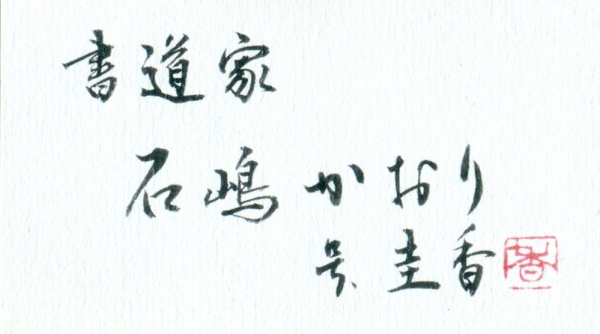 書道家
石嶋かおり
号、圭香